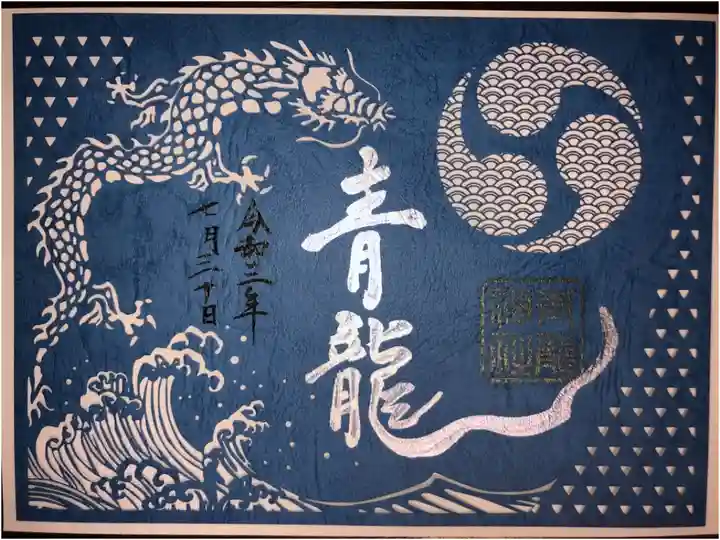 青龍
令和二年
七月三十日